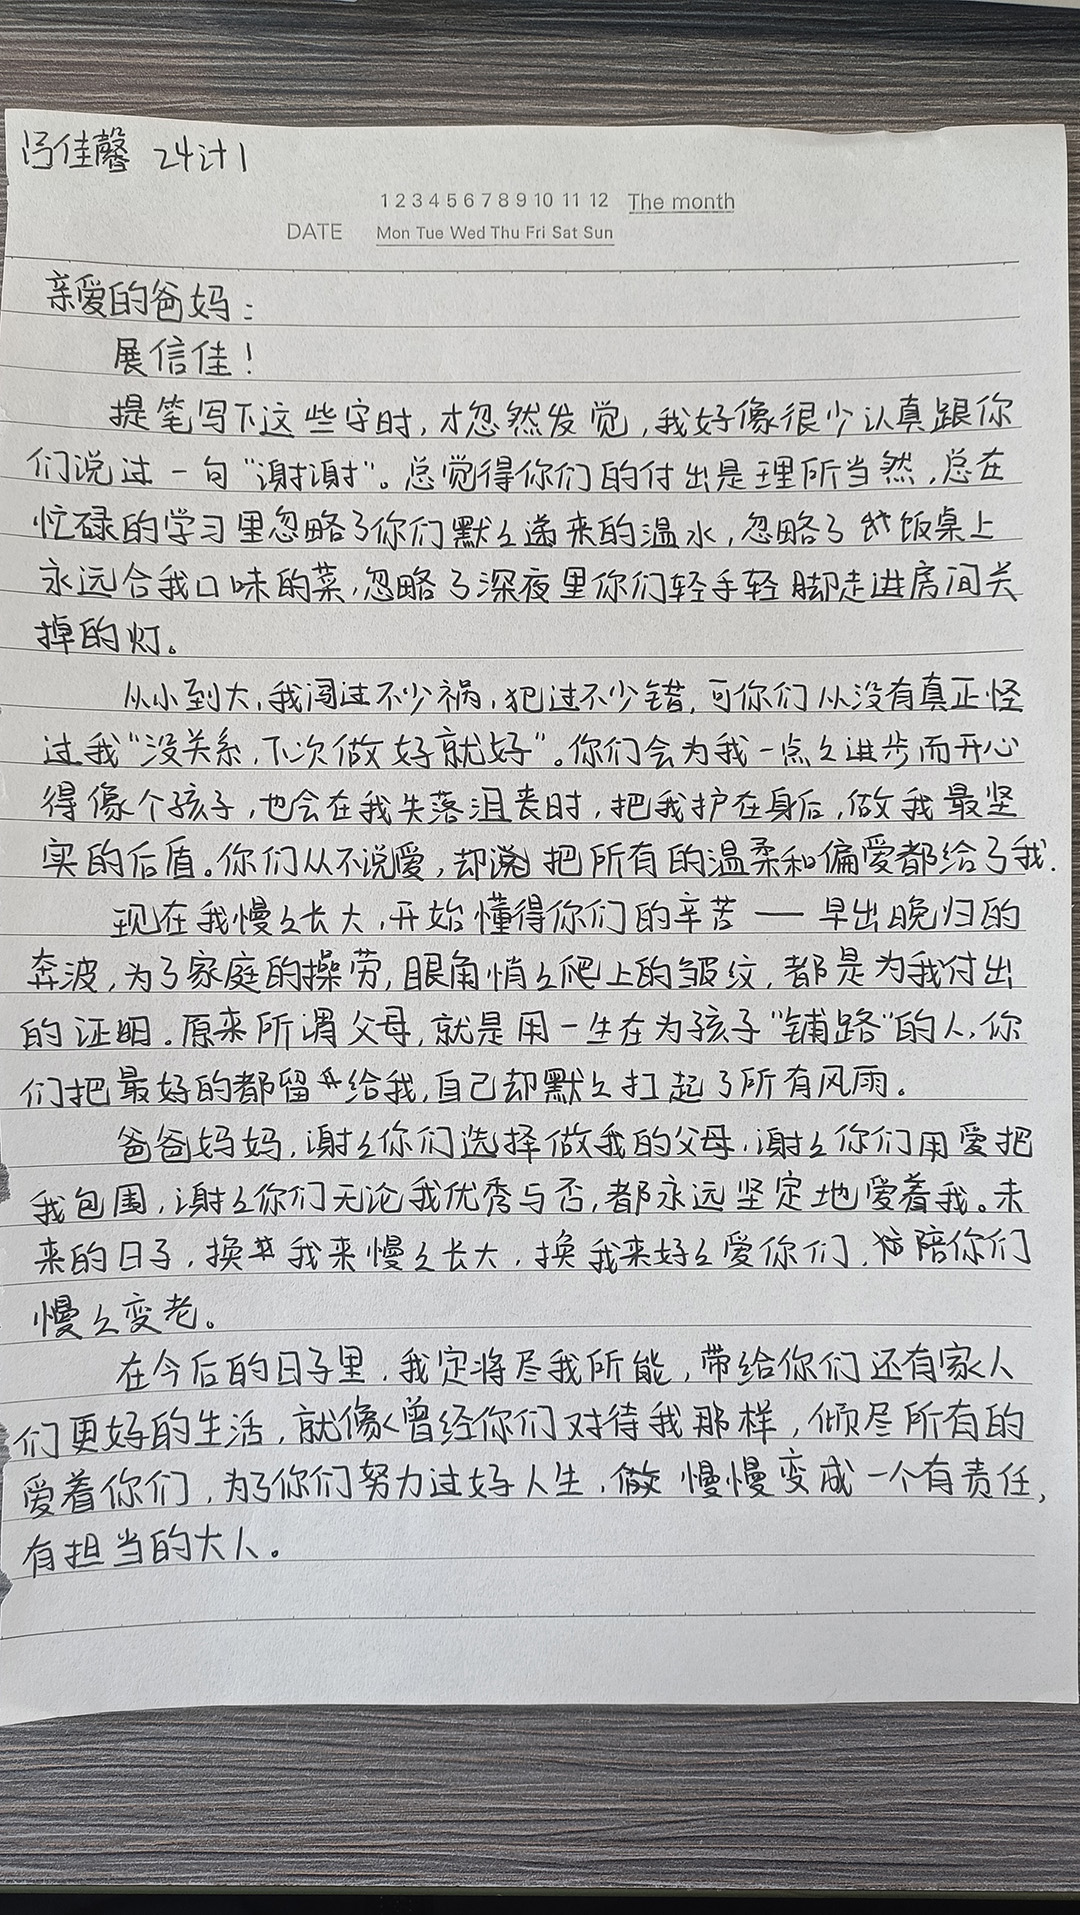 冯佳馨 24计1
1 2 3 4 5 6 7 8 9 10 11 12 The month
DATE Mon Tue Wed Thu Fri Sat Sun
亲爱的爸妈：
展信佳！
提笔写下这些字时，才忽然发觉，我好像很少认真跟你
们说过一句“谢谢”。总觉得你们的付出是理所当然，总在
忙碌的学习里忽略了你们默々递来的温水，忽略了饭桌上
永远合我口味的菜，忽略了深夜里你们轻手轻脚走进房间关
掉的灯。
从小到大，我闯过不少祸，犯过不少错，可你们从没有真正怪
过我“没关系，下次做好就好”。你们会为我一点々进步而开心
得像个孩子，也会在我失落沮丧时，把我护在身后，做我最坚
实的后盾。你们从不说爱，却把所有的温柔和偏爱都给了我.
现在我慢々长大，开始懂得你们的辛苦——早出晚归的
奔波，为了家庭的操劳，眼角悄々爬上的皱纹，都是为我付出
的证明。原来所谓父母，就是用一生在为孩子“铺路”的人，你
们把最好的都留给我，自己却默々扛起了所有风雨。
爸爸妈妈，谢々你们选择做我的父母，谢々你们用爱把
我包围，谢々你们无论我优秀与否，都永远坚定地爱着我。未
来的日子，换我来慢々长大，换我来好々爱你们，陪你们
慢々变老。
在今后的日子里，我定将尽我所能，带给你们还有家人
们更好的生活，就像曾经你们对待我那样，倾尽所有的
爱着你们，为了你们努力过好人生，慢慢变成一个有责任，
有担当的大人。